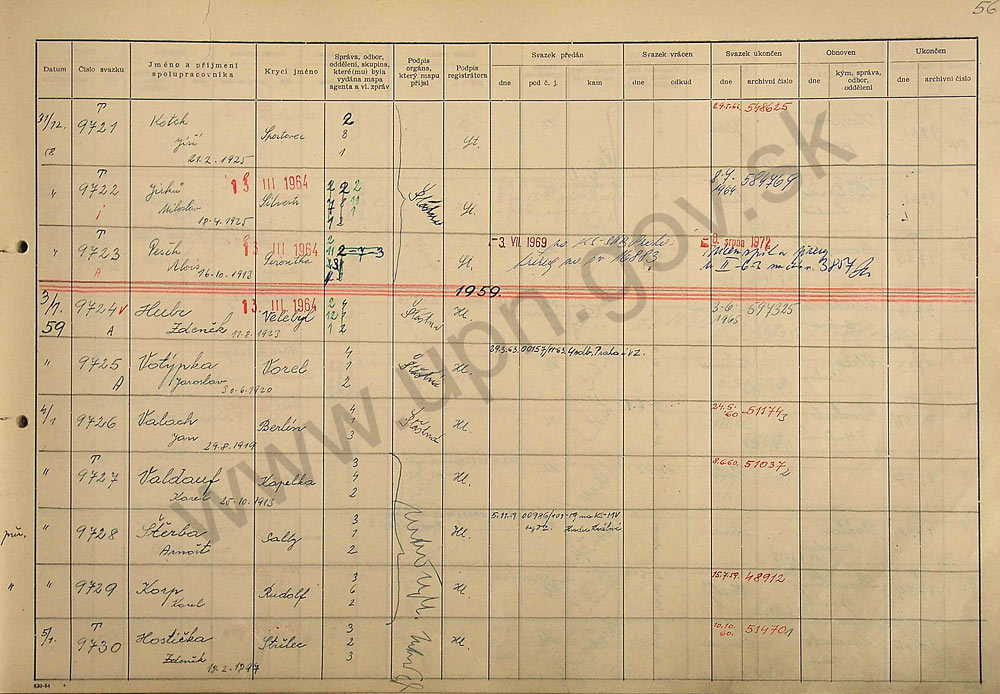 56
Datum
Číslo svazku
Jméno a příjmení spolupracovníka
Krycí jméno
Správa, odbor, oddělení, skupina, které(mu) byla vydána mapa agenta a vl. zpráv
Podpis orgána, který mapu přijal
Podpis registrátora
Svazek předán
dne
pod č. j.
kam
Svazek vrácen
dne
odkud
Svazek ukončen
dne
archivní číslo
Obnoven
dne
kým, správa, odbor, oddělení
Ukončen
dne
archivní číslo
31/12. 58 T 9721 Kotch Jiří 21.2.1925 Sportovec 2 8 1 548625
" T 9722 Miloslav 18.4.1925 13 III 1964 Silvestr Šťastná 1964 584769
" T 9723 A Pešek Alois 16.10.1913 13 III 1964 2-7-3 -3. VII. 1969 srpna 1972
1959.
3/1. 59 9724 A Hubr Zdeněk 11.8.1933 13 III 1964 Velebyl Šťastná Hl. 3-6 1965 594325
" 9725 A Votýpka Jaroslav 30.6.1920 Vorel 4 1 2 Šťastná Hl. 29.3.63. 4 odb. Praha
4/1 9726 Valach Jan 29.8.1919 Berlín 4 1 3 Šťastná Hl. 24.5. 60 511743
" T 9727 Valdauf Karel 25.10.1913 Kapelka 3 4 2 Hl. 8.6.60. 510372
" 9728 Štěrba Arnošt Sally 3 1 2 Hl.
" " 9729 Korp Karel Rudolf 3 6 2 Hl. 15.7.59. 48912
5/1. T 9730 Hostička Zdeněk Střelec 3 2 3 Hl. 10.10. 60. 514701
www.upn.gov.sk